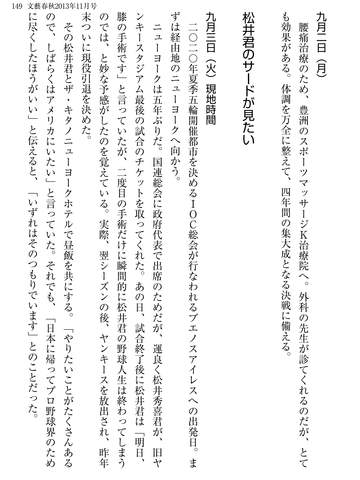 149 文藝春秋2013年11月号
九月二日（月）
腰痛治療のため、豊洲のスポーツマッサージK治療院へ。外科の先生が診てくれるのだが、とて
も効果がある。体調を万全に整えて、四年間の集大成となる決戦に備える。
松井君のサードが見たい
九月三日（火）現地時間
二〇二〇年夏季五輪開催都市を決めるIOC総会が行なわれるブエノスアイレスへの出発日。ま
ずは経由地のニューヨークへ向かう。
ニューヨークは五年ぶりだ。国連総会に政府代表で出席のためだが、運良く松井秀喜君が、旧ヤ
ンキースタジアム最後の試合のチケットを取ってくれた。あの日、試合終了後に松井君は「明日、
膝の手術です」と言っていたが、二度目の手術だけに瞬間的に松井君の野球人生は終わってしまう
のでは、と妙な予感がしたのを覚えている。実際、翌シーズンの後、ヤンキースを放出され、昨年
末ついに現役引退を決めた。
その松井君とザ・キタノニューヨークホテルで昼飯を共にする。「やりたいことがたくさんある
ので、しばらくはアメリカにいたい」と言っていた。それでも、「日本に帰ってプロ野球界のため
に尽くしたほうがいい」と伝えると、「いずれはそのつもりでいます」とのことだった。